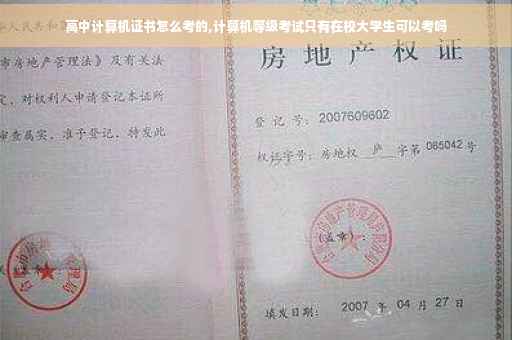 高中计算机证书怎么考的,计算机等级考试只有在校大学生可以考吗
华人民共和
市房地产管理法》及有关法
定,对权利人申请登记本证所
审查属实,准予登记,特发此
房地产权证
登记号:2007609602
权证字号:房地权 庐 字第 085042 号
(盖章):
填发日期: 2007 年 04 月 27 日